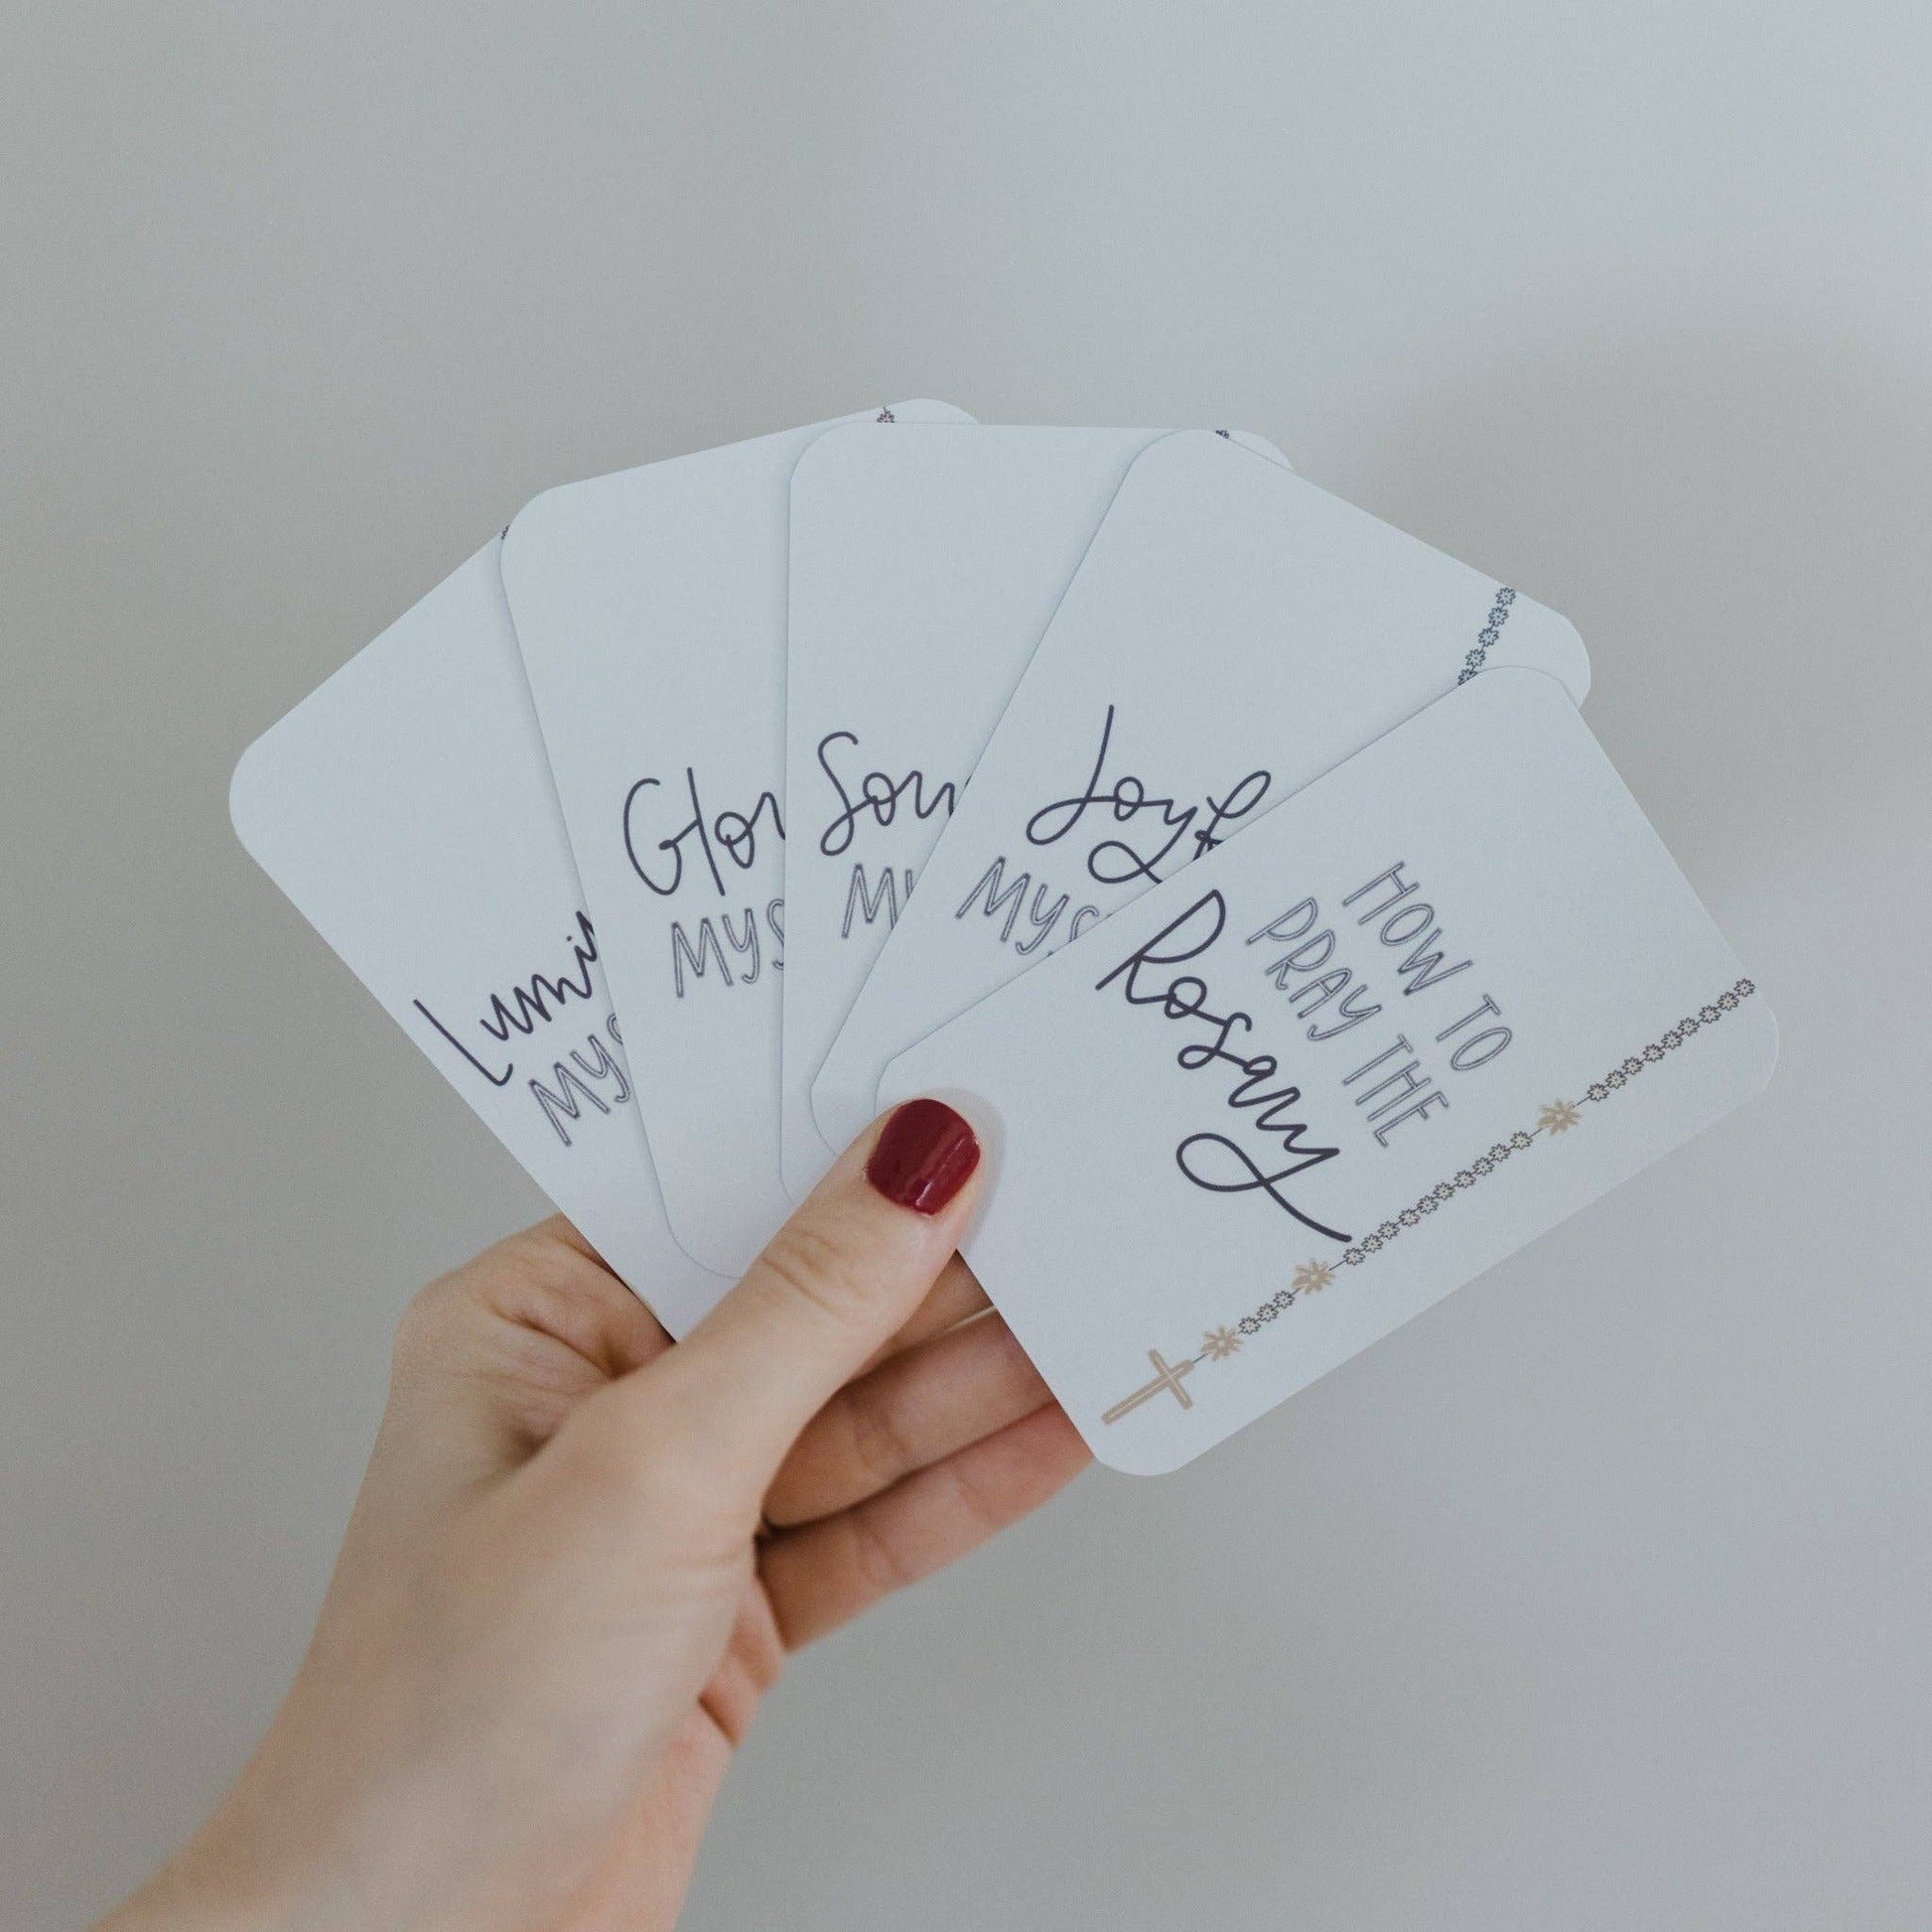 Lumi
MYS
Glor
MYS
Sorr
MY
Joyf
MYS
HOW TO
PRAY THE
Rosary